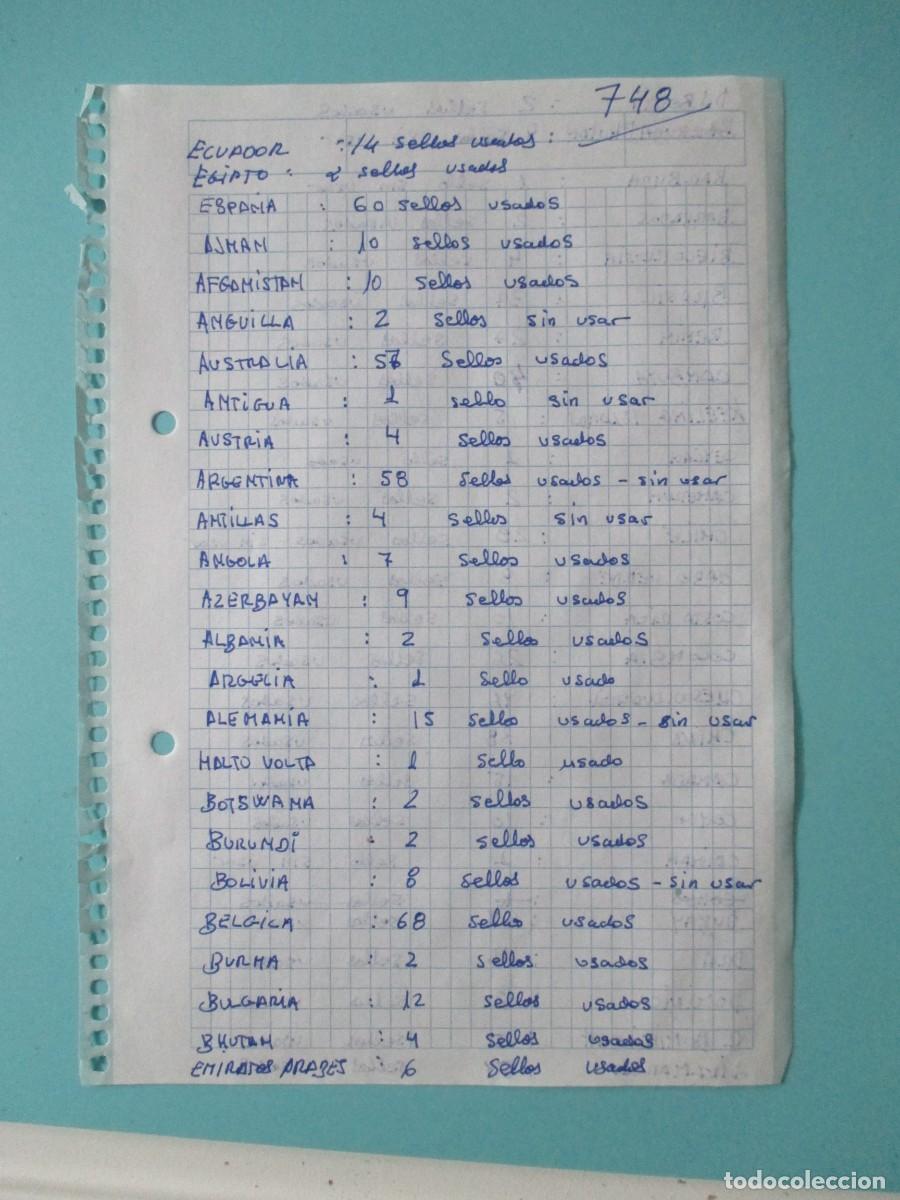 748
ECUADOR : 14 sellos usados :
EGIPTO : 2 sellos usados
ESPAÑA : 60 sellos usados
AJMAN : 10 sellos usados
AFGANISTAN : 10 sellos usados
ANGUILLA : 2 sellos sin usar
AUSTRALIA : Sellos usados
ANTIGUA : 1 sello sin usar
AUSTRIA : 4 sellos usados
ARGENTINA : 58 sellos usados - sin usar
ANTILLAS : 4 sellos sin usar
ANGOLA : 7 sellos usados
AZERBAYAN : 9 sellos usados
ALBANIA : 2 sellos usados
ARGELIA : 1 sello usado
ALEMANIA : 15 sello usados - sin usar
HALTO VOLTA : 1 sello usado
BOTSWANA : 2 sellos usados
BURUNDI : 2 sellos usados
BOLIVIA : 8 sellos usados - sin usar
BELGICA : 68 sello usados
BURMA : 2 sellos usados
BULGARIA : 12 sellos usados
BHUTAN : 4 sellos usadas
EMIRATOS ARABES : 6 sellos usados
todocoleccion